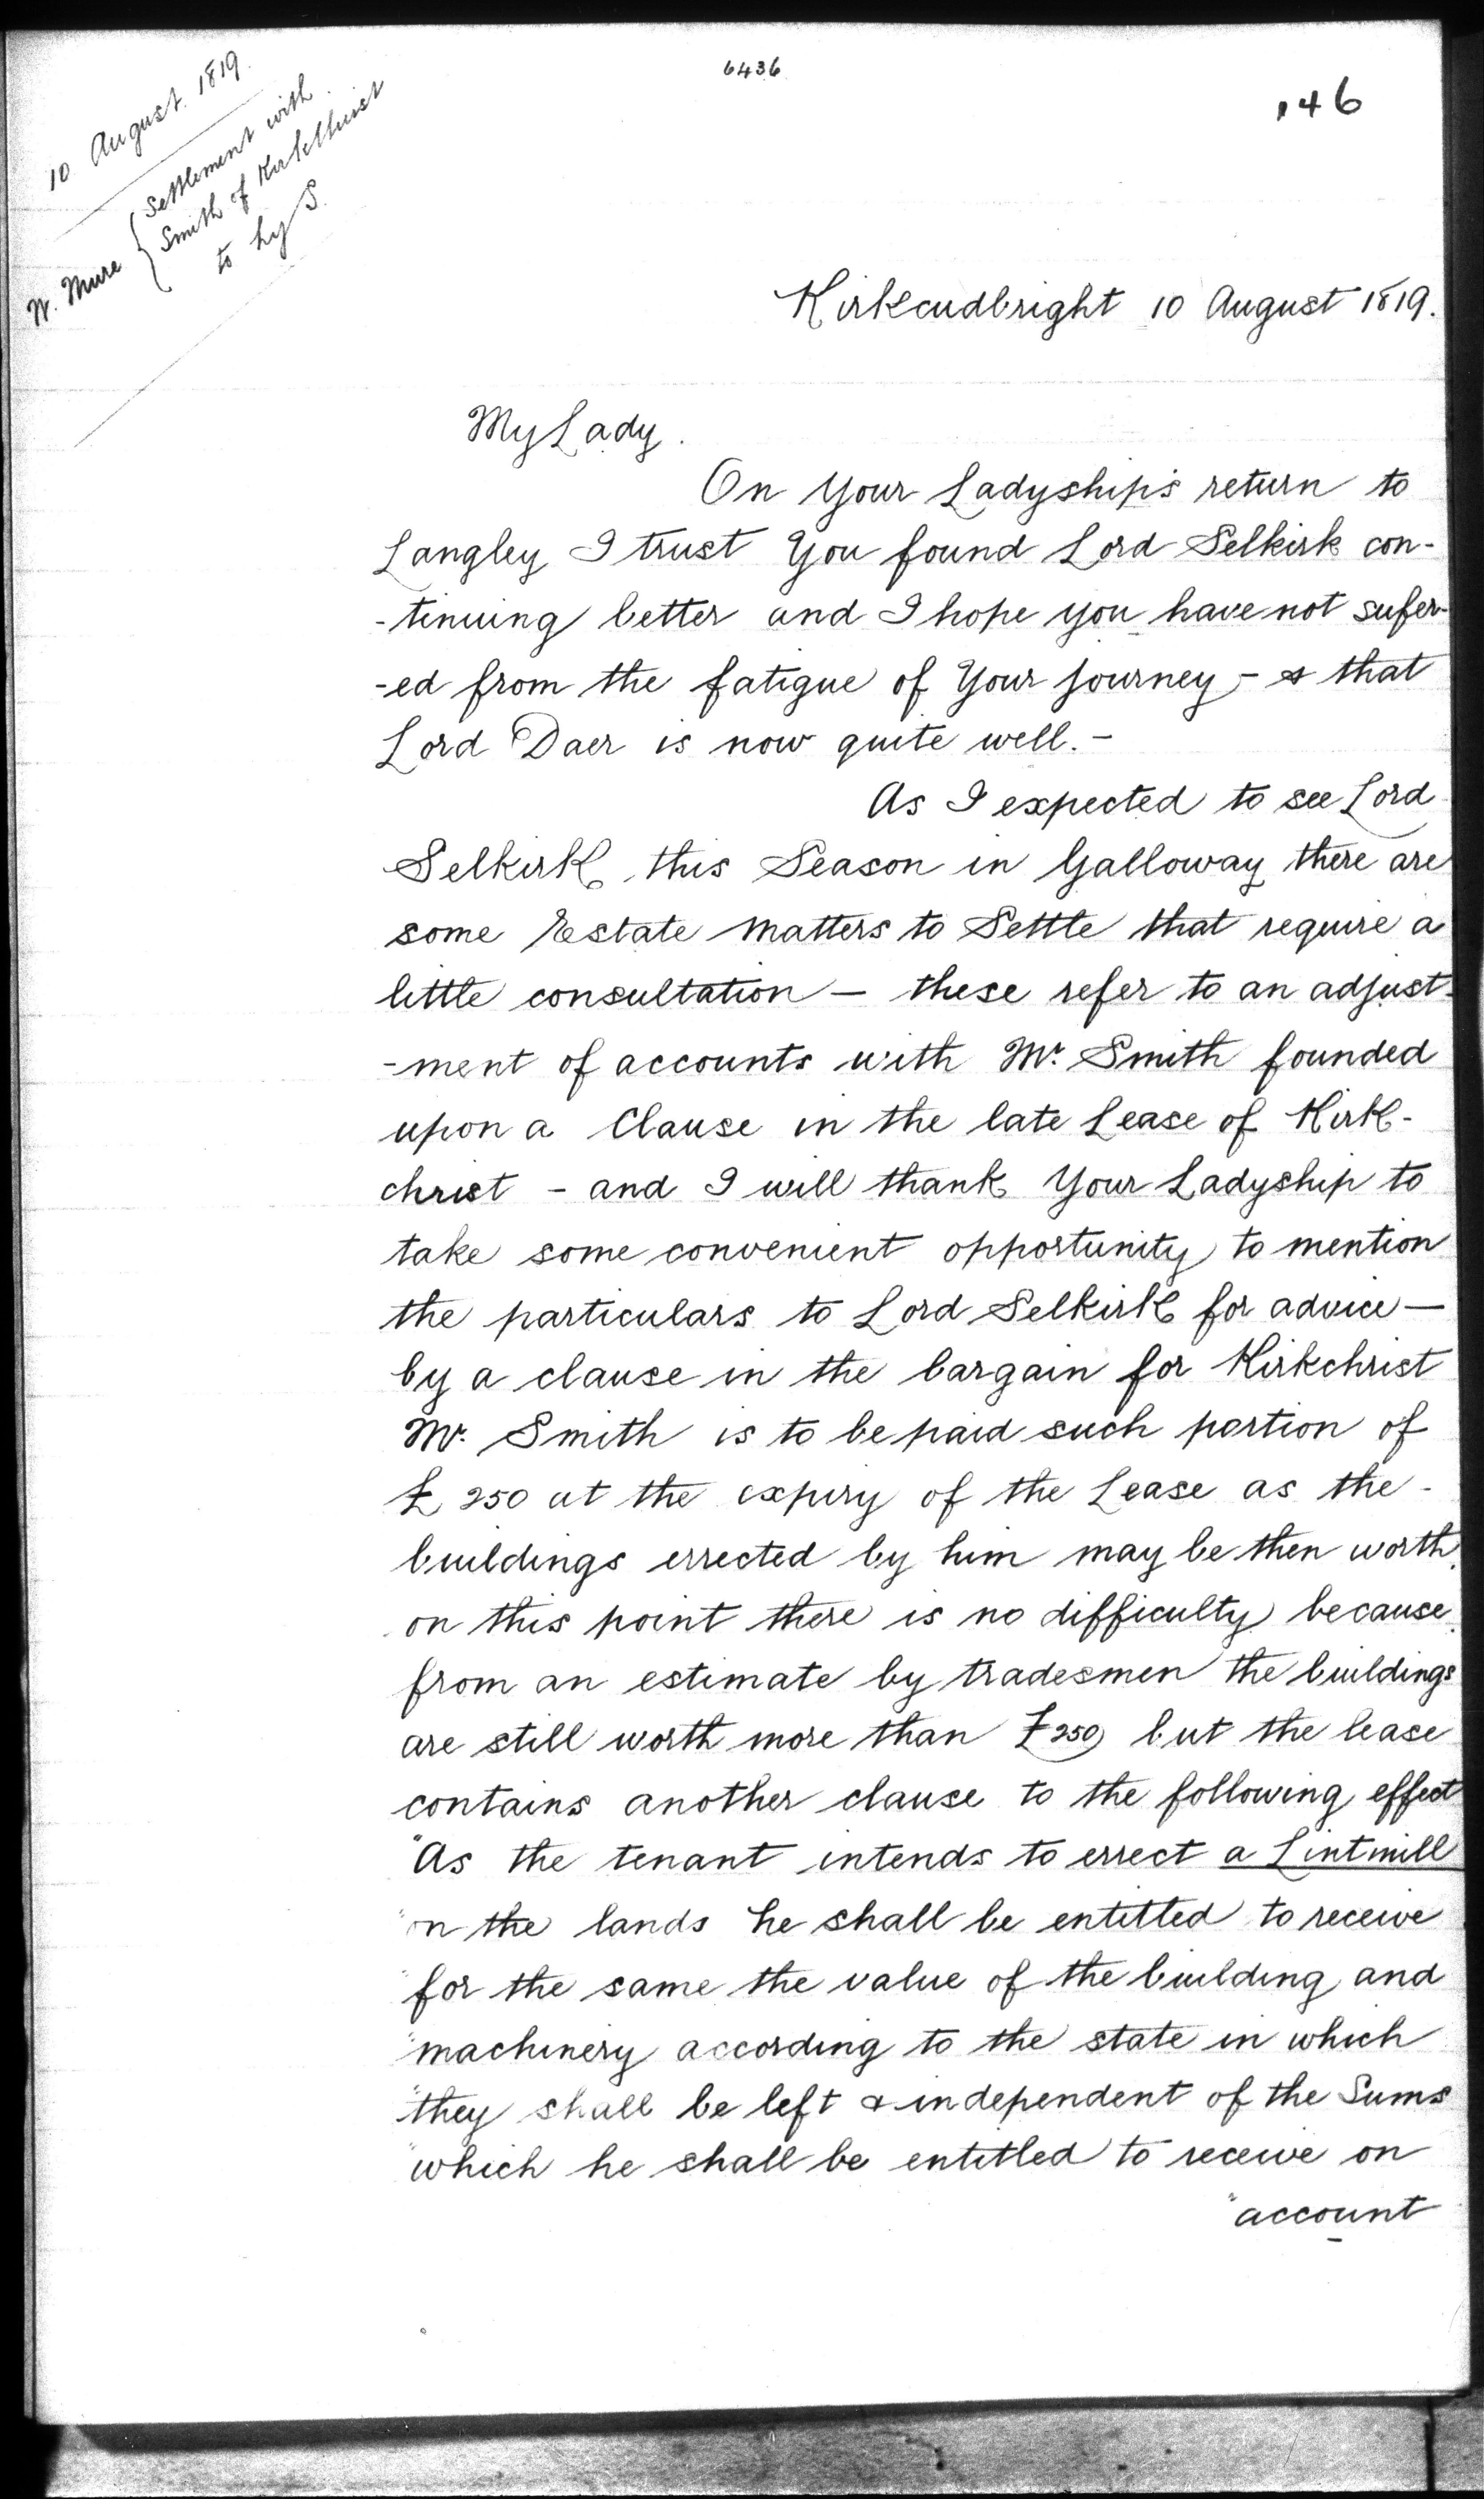 6436
146
10 August. 1819.
W. Mure { Settlement with
Smith of Kirkchrist
to Ly S.
Kirkcudbright 10 August 1819.
My Lady.
On Your Ladyship's return to
Langley I trust You found Lord Selkirk con-
-tinuing better and I hope you have not sufer-
-ed from the fatigue of Your journey - & that
Lord Daer is now quite well. -
As I expected to see Lord
Selkirk this Season in Galloway there are
some Estate matters to Settle that require a
little consultation — these refer to an adjust-
-ment of accounts with Mr. Smith founded
upon a Clause in the late Lease of Kirk-
christ - and I will thank Your Ladyship to
take some convenient opportunity to mention
the particulars to Lord Selkirk for advice —
by a clause in the bargain for Kirkchrist
Mr. Smith is to be paid such portion of
£250 at the expiry of the Lease as the -
buildings errected by him may be then worth.
on this point there is no difficulty because
from an estimate by tradesmen the buildings
are still worth more than £250 but the lease
contains another clause to the following effect
"As the tenant intends to errect a Lintmill
"on the lands he shall be entitled to receive
"for the same the value of the building and
"machinery according to the state in which
"they shall be left & independent of the Sums
"which he shall be entitled to receive on
"account